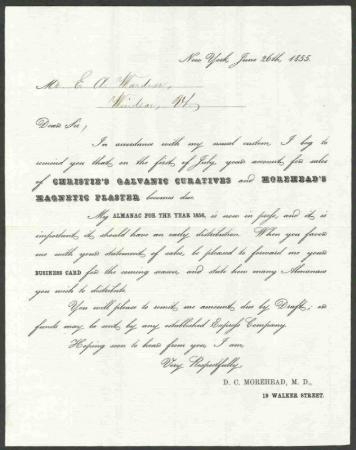 New York, June 26th, 1855.
Mr. E. A. Wardner,
Windsor, Vt,
Dear Sir,
In accordance with my usual custom, I beg to
remind you that on the first of July, your account for sales
of CHRISTIE'S GALVANIC CURATIVES and MOREHEAD'S
MAGNETIC PLASTER becomes due.
My ALMANAC FOR THE YEAR 1856, is now in press, and it is
important it should have an early distribution. When you favor
me with your statement of sales, be pleased to forward me your
BUSINESS CARD for the coming season, and state how many Almanacs
you wish to distribute.
You will please to remit me amount due by Draft; or
funds may be sent by any established Express Company.
Hoping soon to hear from you, I am,
Very Respectfully,
D. C. MOREHEAD, M. D.,
19 WALKER STREET.